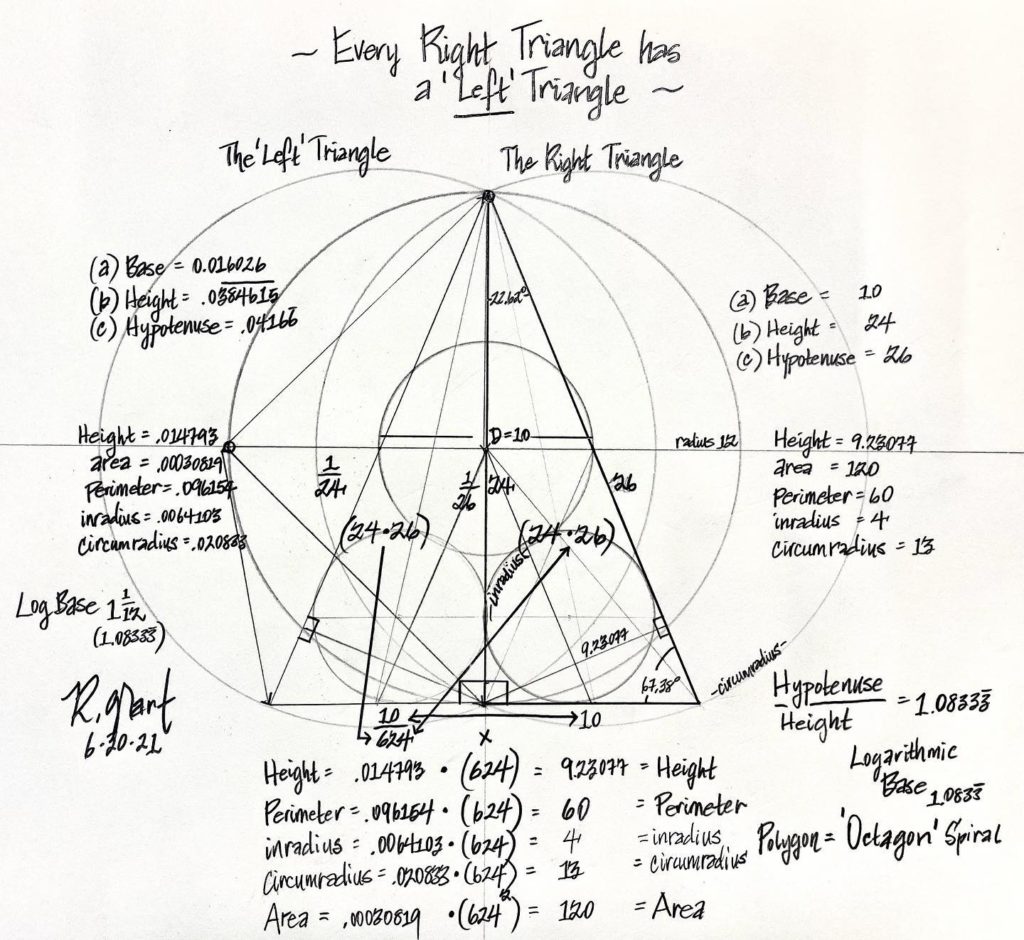 ~ Every Right Triangle has
a 'Left' Triangle ~
The 'Left' Triangle
The Right Triangle
(a) Base = 0.016026
(b) Height = .0384615
(c) Hypotenuse = .04166
22.62°
(a) Base = 10
(b) Height = 24
(c) Hypotenuse = 26
Height = .014793
area = .00030819
Perimeter = .096154
inradius = .0064103
circumradius = .020833
D=10
radius 12
Height = 9.23077
area = 120
Perimeter = 60
inradius = 4
circumradius = 13
1/24
1/26
24
26
(24·26)
(24·26)
-inradius-
Log Base 1 1/12
(1.08333)
9.23077
67.38°
-circumradius-
R. Grant
6·20·21
10/624
10
x
Hypotenuse/Height = 1.08333
Logarithmic
Base 1.0833
Polygon = 'Octagon' Spiral
Height = .014793 · (624) = 9.23077 = Height
Perimeter = .096154 · (624) = 60 = Perimeter
inradius = .0064103 · (624) = 4 = inradius
Circumradius = .020833 · (624) = 13 = circumradius
Area = .00030819 · (624²) = 120 = Area